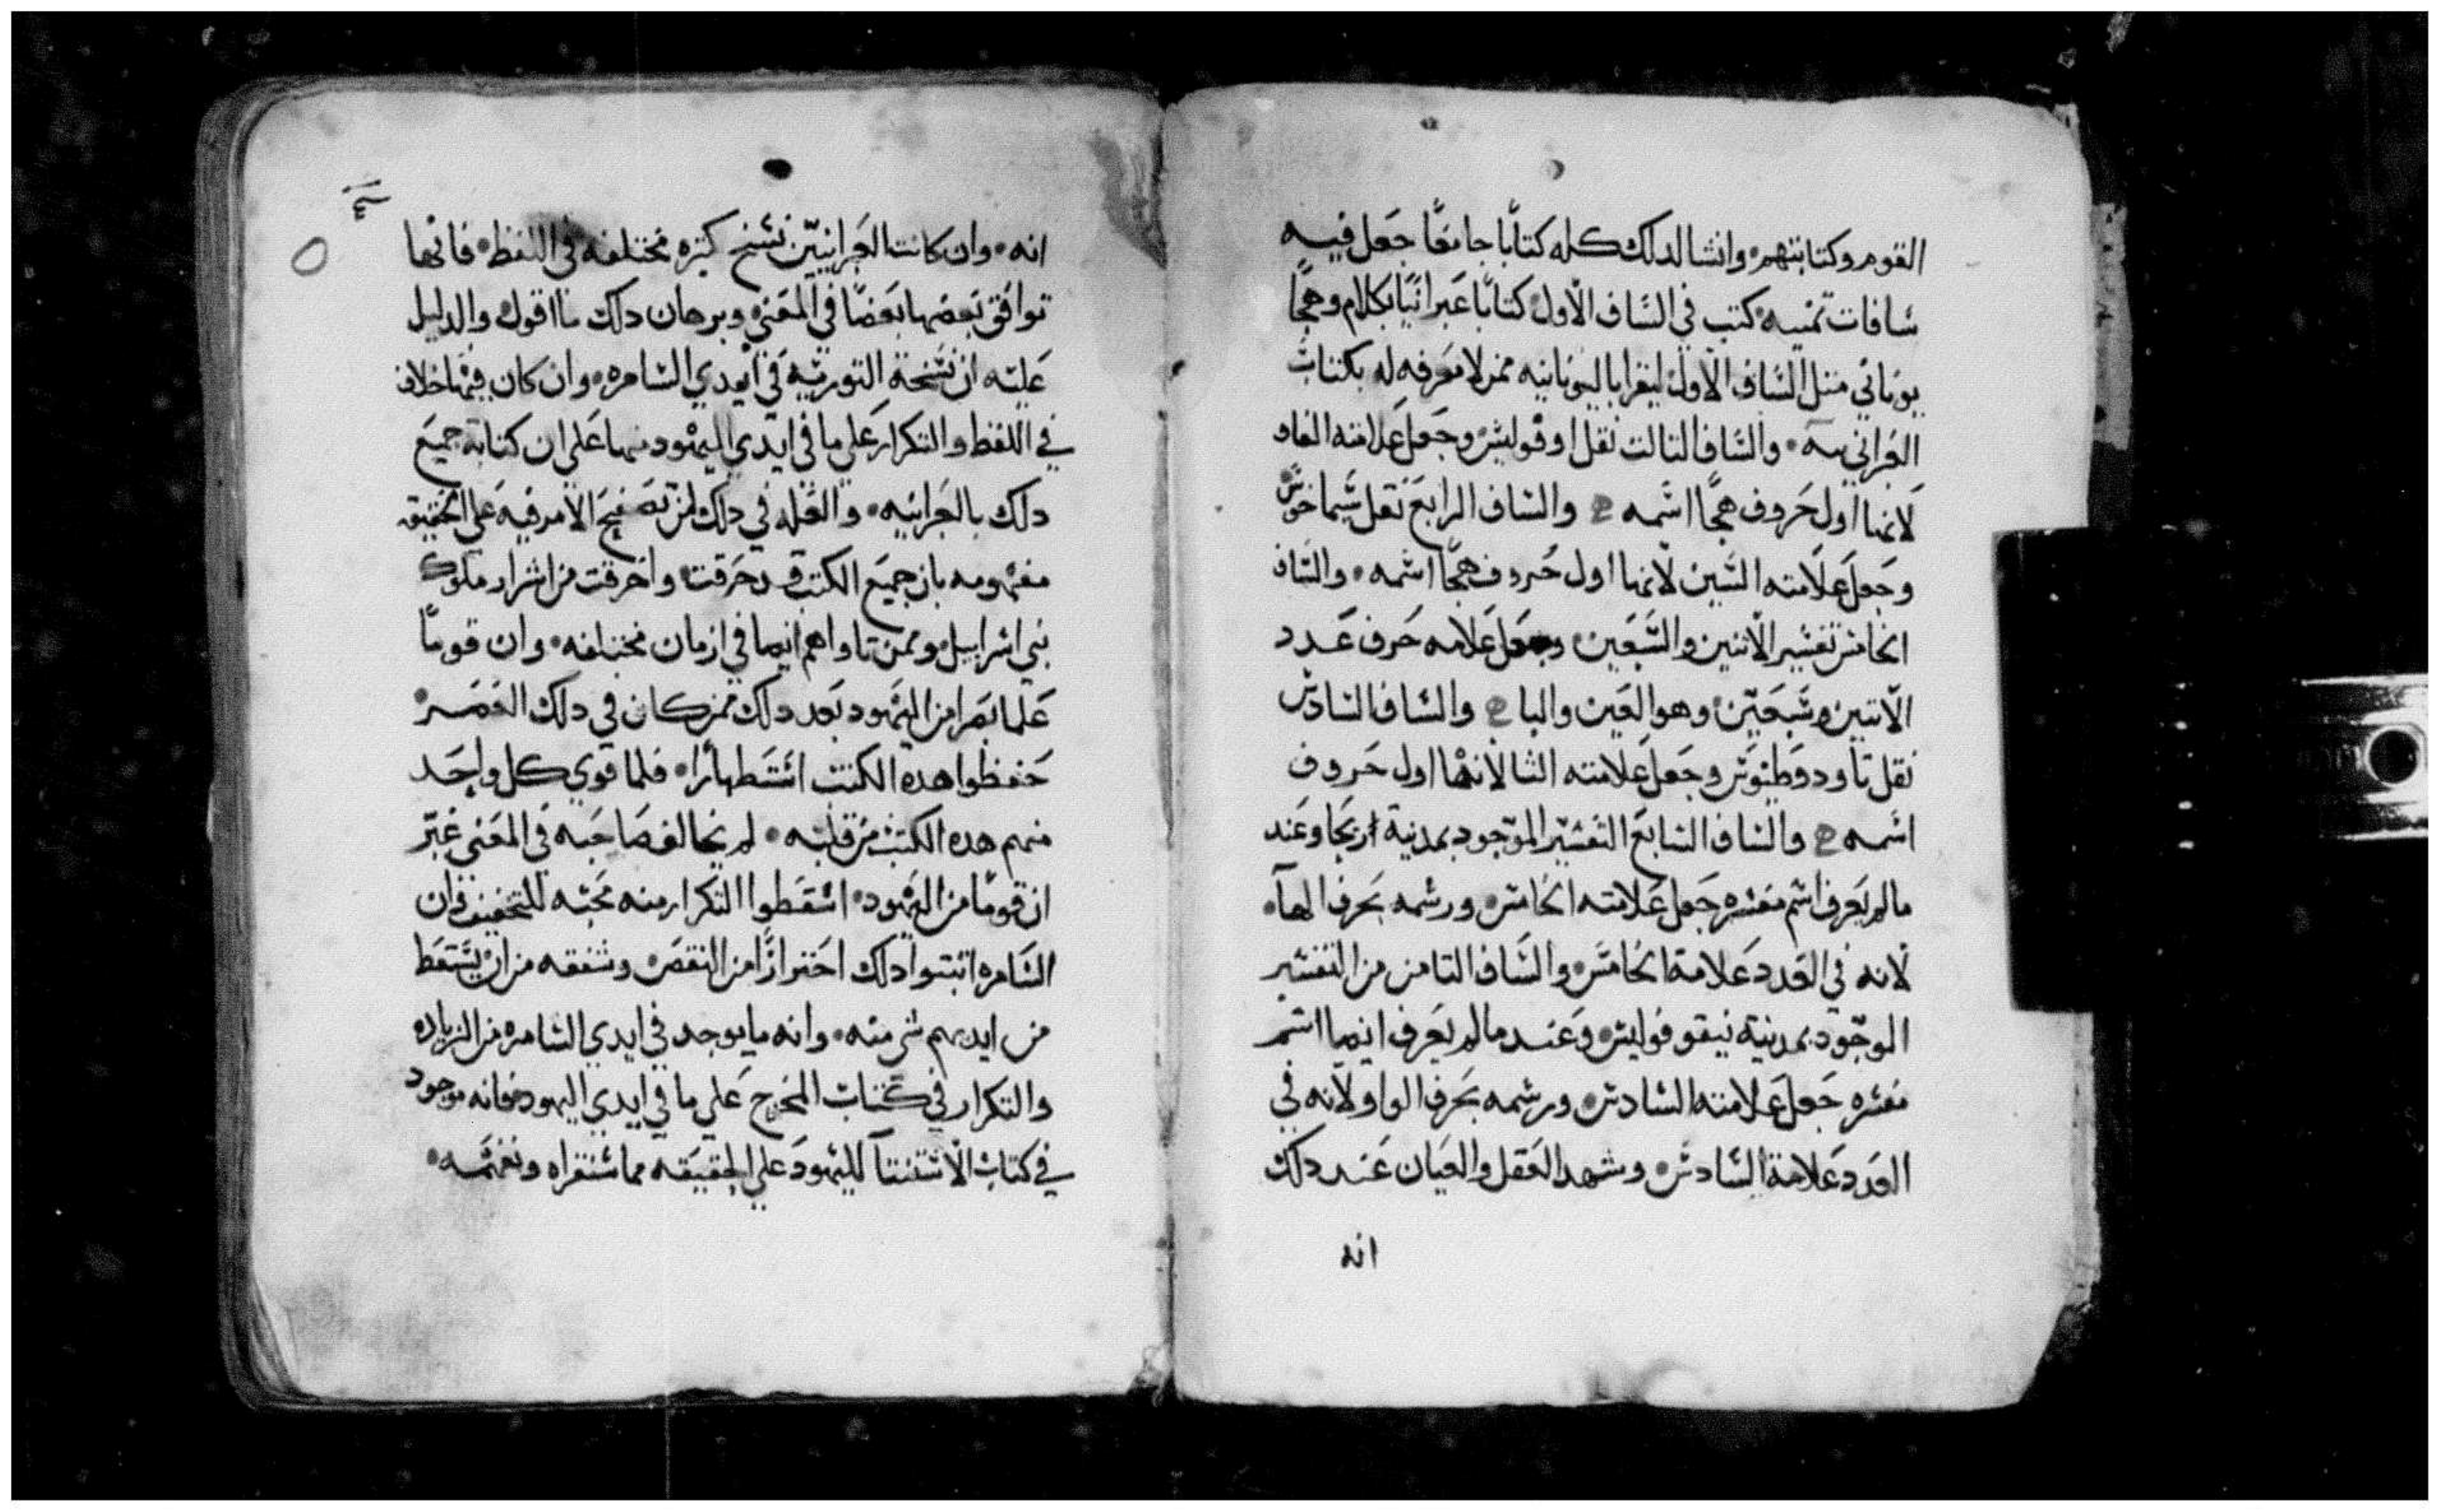 القوم وكتابتهم • وانشا لدلك كله كتابا جامعا جعل فيه
سافات تمنيه كتب في الساف الاول كتابا عبرانيا بكلام وهجا
يوناني متل الساف الاول ليقرا باليونانيه ممن لا معرفه له بكتاب
العبرانيه • والساف التالت نقل اوقوليس وجعل علامته الفا و
لانها اول حروف هجا اسمه والساف الرابع نقل سماخوس
وجعل علامته السين لانها اول حروف هجا اسمه • والساف
الخامس تفسير الاتنين والسبعين وجعل علامه حرف عدد
الاتنين وسبعين وهو العين والبا والساف السادس
نقل تاودوطيوس وجعل علامته التا لانها اول حروف
اسمه والساف السابع التفسير الموجود بمدنية اريحا وعند
ما لم يعرف اسم مفسره جعل علامته الخامس ورسمه بحرف الهآ •
لانه في العدد علامة الخامس والساف التامن من التفسير
الموجود بمدنية نيقوفوليس وعند ما لم يعرف ايضا اسم
مفسره جعل علامته السادس ورسمه بحرف الواو لانه في
العدد علامة السادس وشهد العقل والعيان عند دلك
انه
انه • وان كانت العبرانيين نسخ كتيره مختلفه في اللفظ • فانها
توافق بعضها بعضا في المعنى وبرهان دلك ما اقول والدليل
عليه ان نسخة التوريه في ايدي السامره • وان كان فيها خلاف
في اللفظ والتكرار على ما في ايدي اليهود منها على ان كتابة جميع
دلك بالعبرانيه • والعله في دلك لمن تصفح الامر فيه على الحقيق
مفهومه بان جميع الكتب قد حرقت واخرقت من اشرار ملوك
بني اسراييل وممن ناواهم ايضا في ازمان مختلفه • وان قوما
علما بصرا من اليهود بعد دلك ممن كان في دلك العصر •
حفظوا هده الكتب استظهارا • فلما قوي كل واحد
منهم هده الكتب من قلبه • لم يخالف صاحبه في المعنى غير
ان قوما من اليهود • اسقطوا التكرار منه محبه للتخفيف وان
السامره اتبتوا دلك احترازا من النقص وشفقه من ان يسقط
من ايديهم شي منه • وانه ما يوجد في ايدي السامره من الزياده
والتكرار في كتاب المخرج على ما في ايدي اليهود فانه موجود
في كتاب الاستتنآ لليهود على الحقيقه مما ستقراه وتفهمه •